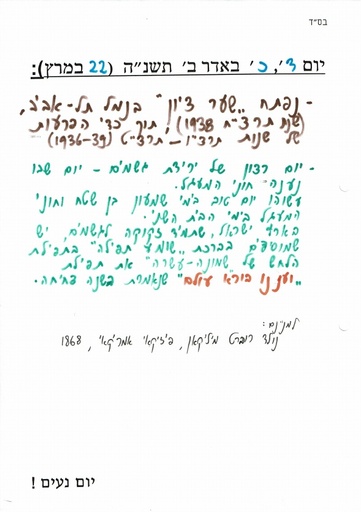 בס"ד
יום ד', כ' באדר ב' תשנ"ה (22 במרץ):
- נפתח "שער ציון" בנמל תל-אביב,
(שנת תרצ"ח 1938), תוך כדי הפרעות
של שנות תרצ"ו - תרצ"ט (1936-39)
- יום רצון של ירידת גשמים - יום שבו
נענה חוני המעגל.
עשוהו יום טוב בימי שמעון בן שטח וחוני
המעגל בימי הבית השני.
בארץ ישראל, שתמיד זקוקה לגשמים, יש
שמוסיפים בברכת "שומע תפילה" בתפילת
הלחש של "שמונה-עשרה" את תפילת
"ועננו בורא עולם" שנאמרת בשנה פחיחה.
למניינם:
נולד רוברט מיליקאן, פיזיקאי אמריקאי, 1868
יום נעים !